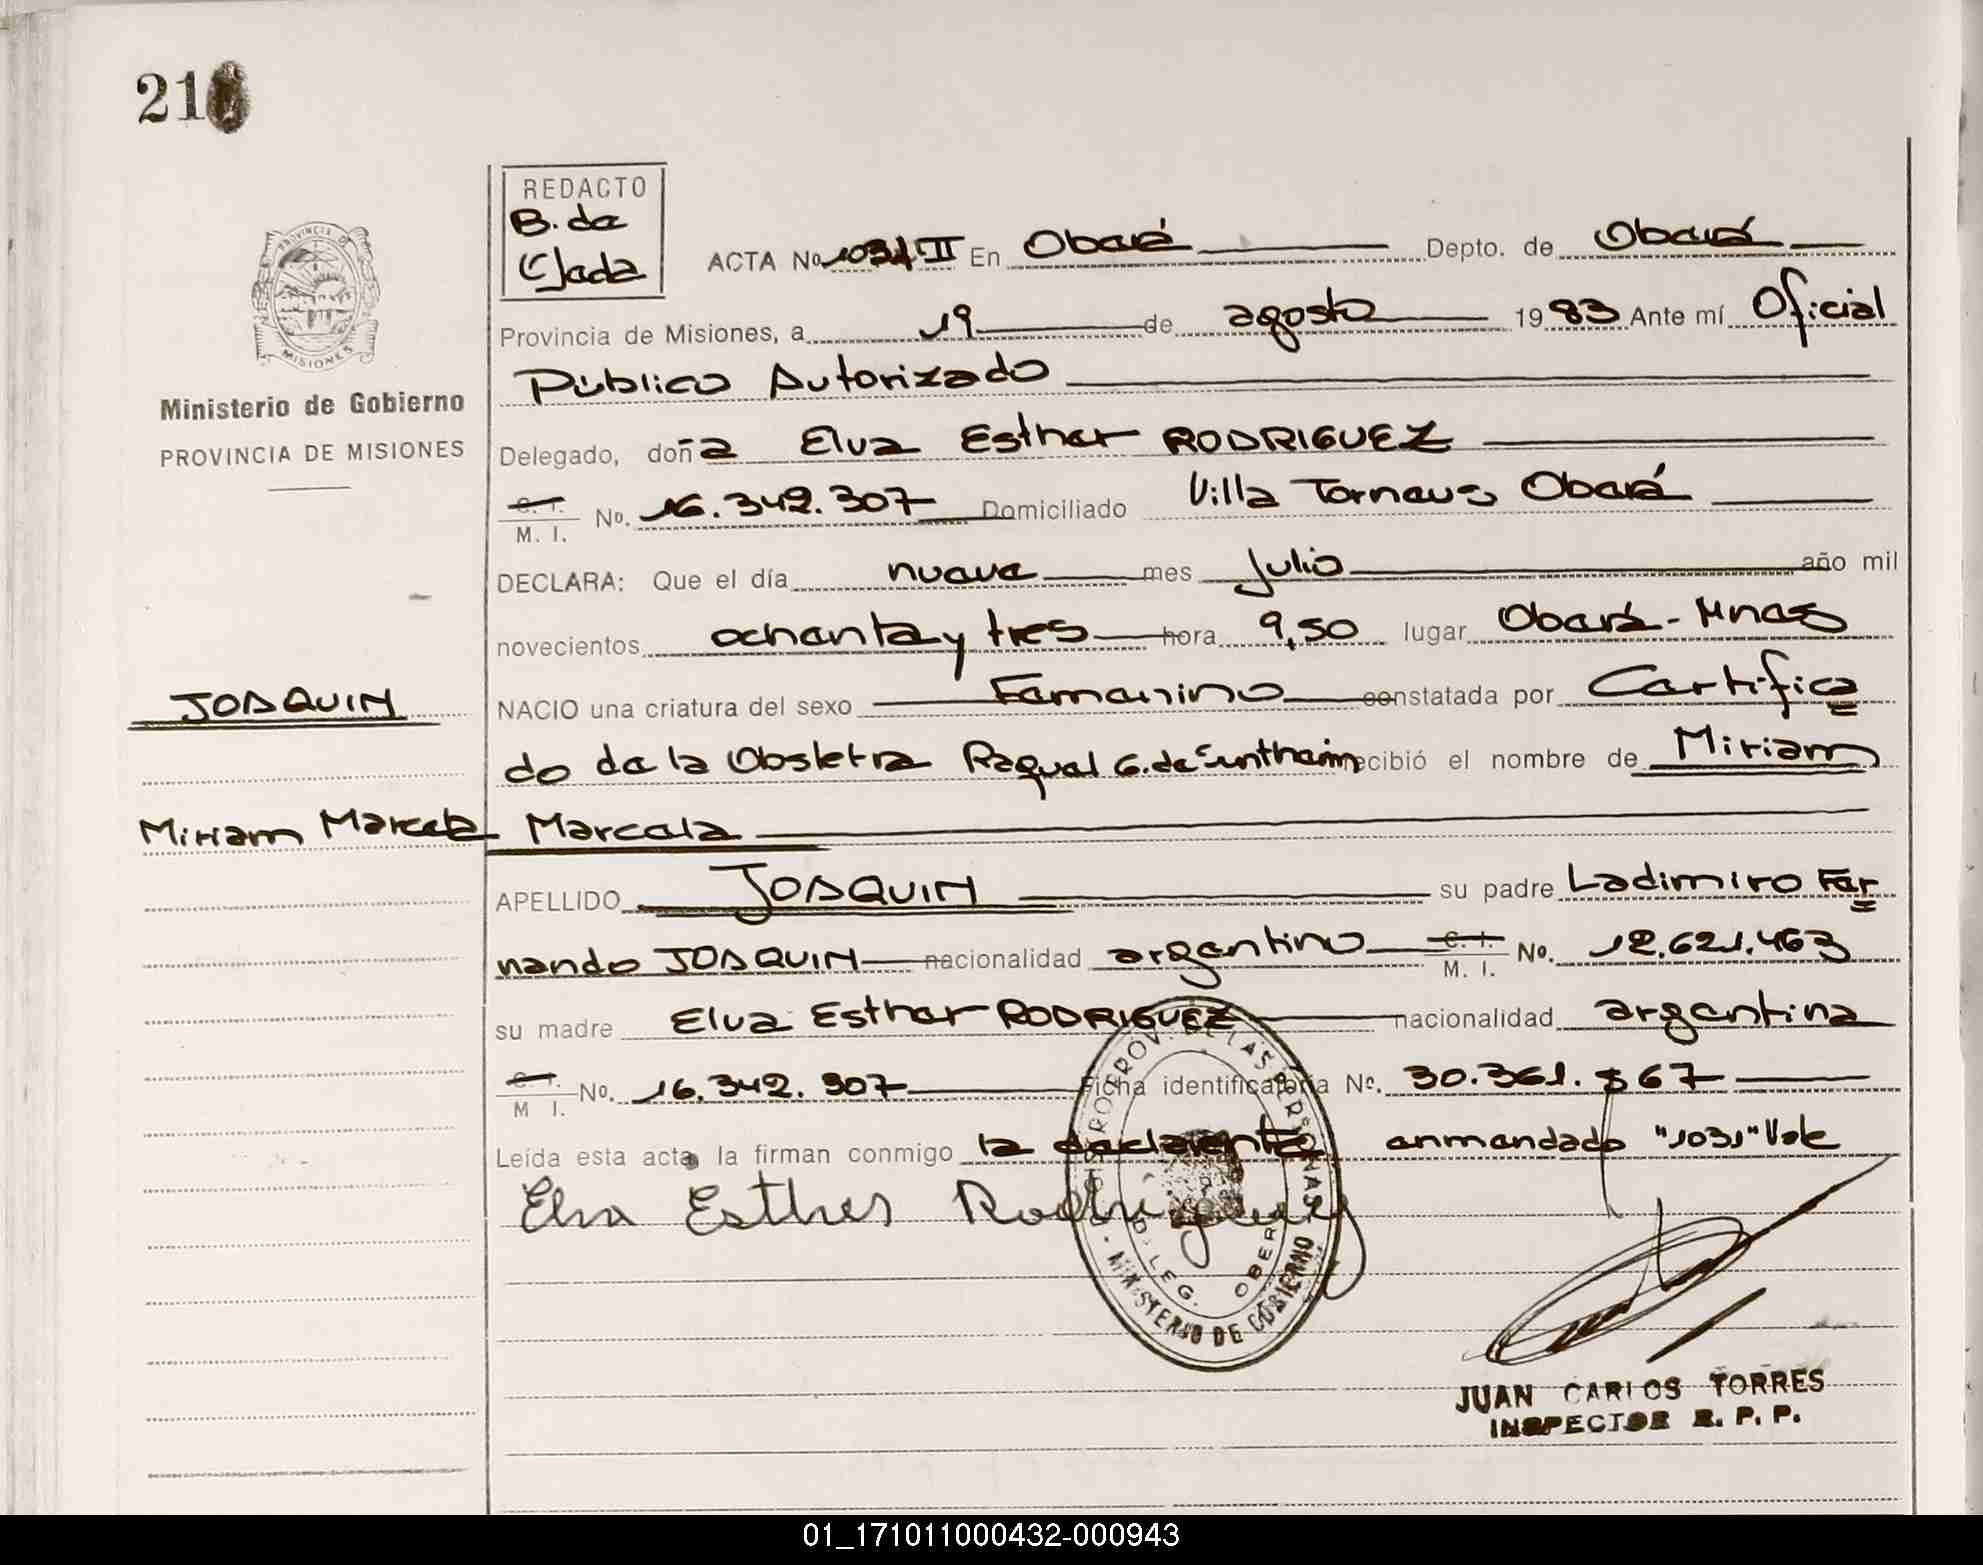 21
REDACTO
B. de
Ojeda
ACTA No 1031 II En Oberá Depto. de Oberá
Provincia de Misiones, a 19 de agosto 1983 Ante mí Oficial
Público Autorizado
PROVINCIA DE
MISIONES
Ministerio de Gobierno
PROVINCIA DE MISIONES
Delegado, doña Elva Esther RODRIGUEZ
C. I.
M. I. No. 16.342.307 Domiciliado Villa Tornaus Oberá
DECLARA: Que el día nueve mes Julio año mil
novecientos ochenta y tres hora 9,50 lugar Oberá - Mnes
JOAQUIN
NACIO una criatura del sexo Femenino constatada por Certifica
do de la Obstetra Raquel G. de recibió el nombre de Miriam
Miriam Marcela Marcela
APELLIDO JOAQUIN su padre Ladimiro Fer
nando JOAQUIN nacionalidad argentino C. I. M. I. No. 12.621.463
su madre Elva Esther RODRIGUEZ nacionalidad argentina
C. I. M I. No. 16.342.307 Ficha identificatoria No. 30.361.567
Leída esta acta la firman conmigo la declarante enmendado "1031" Vale
Elva Esther Rodriguez
PROV. DE LAS PERSONAS
DELEG. OBERA
MINISTERIO DE GOBIERNO
JUAN CARLOS TORRES
INSPECTOR R. P. P.
01_171011000432-000943